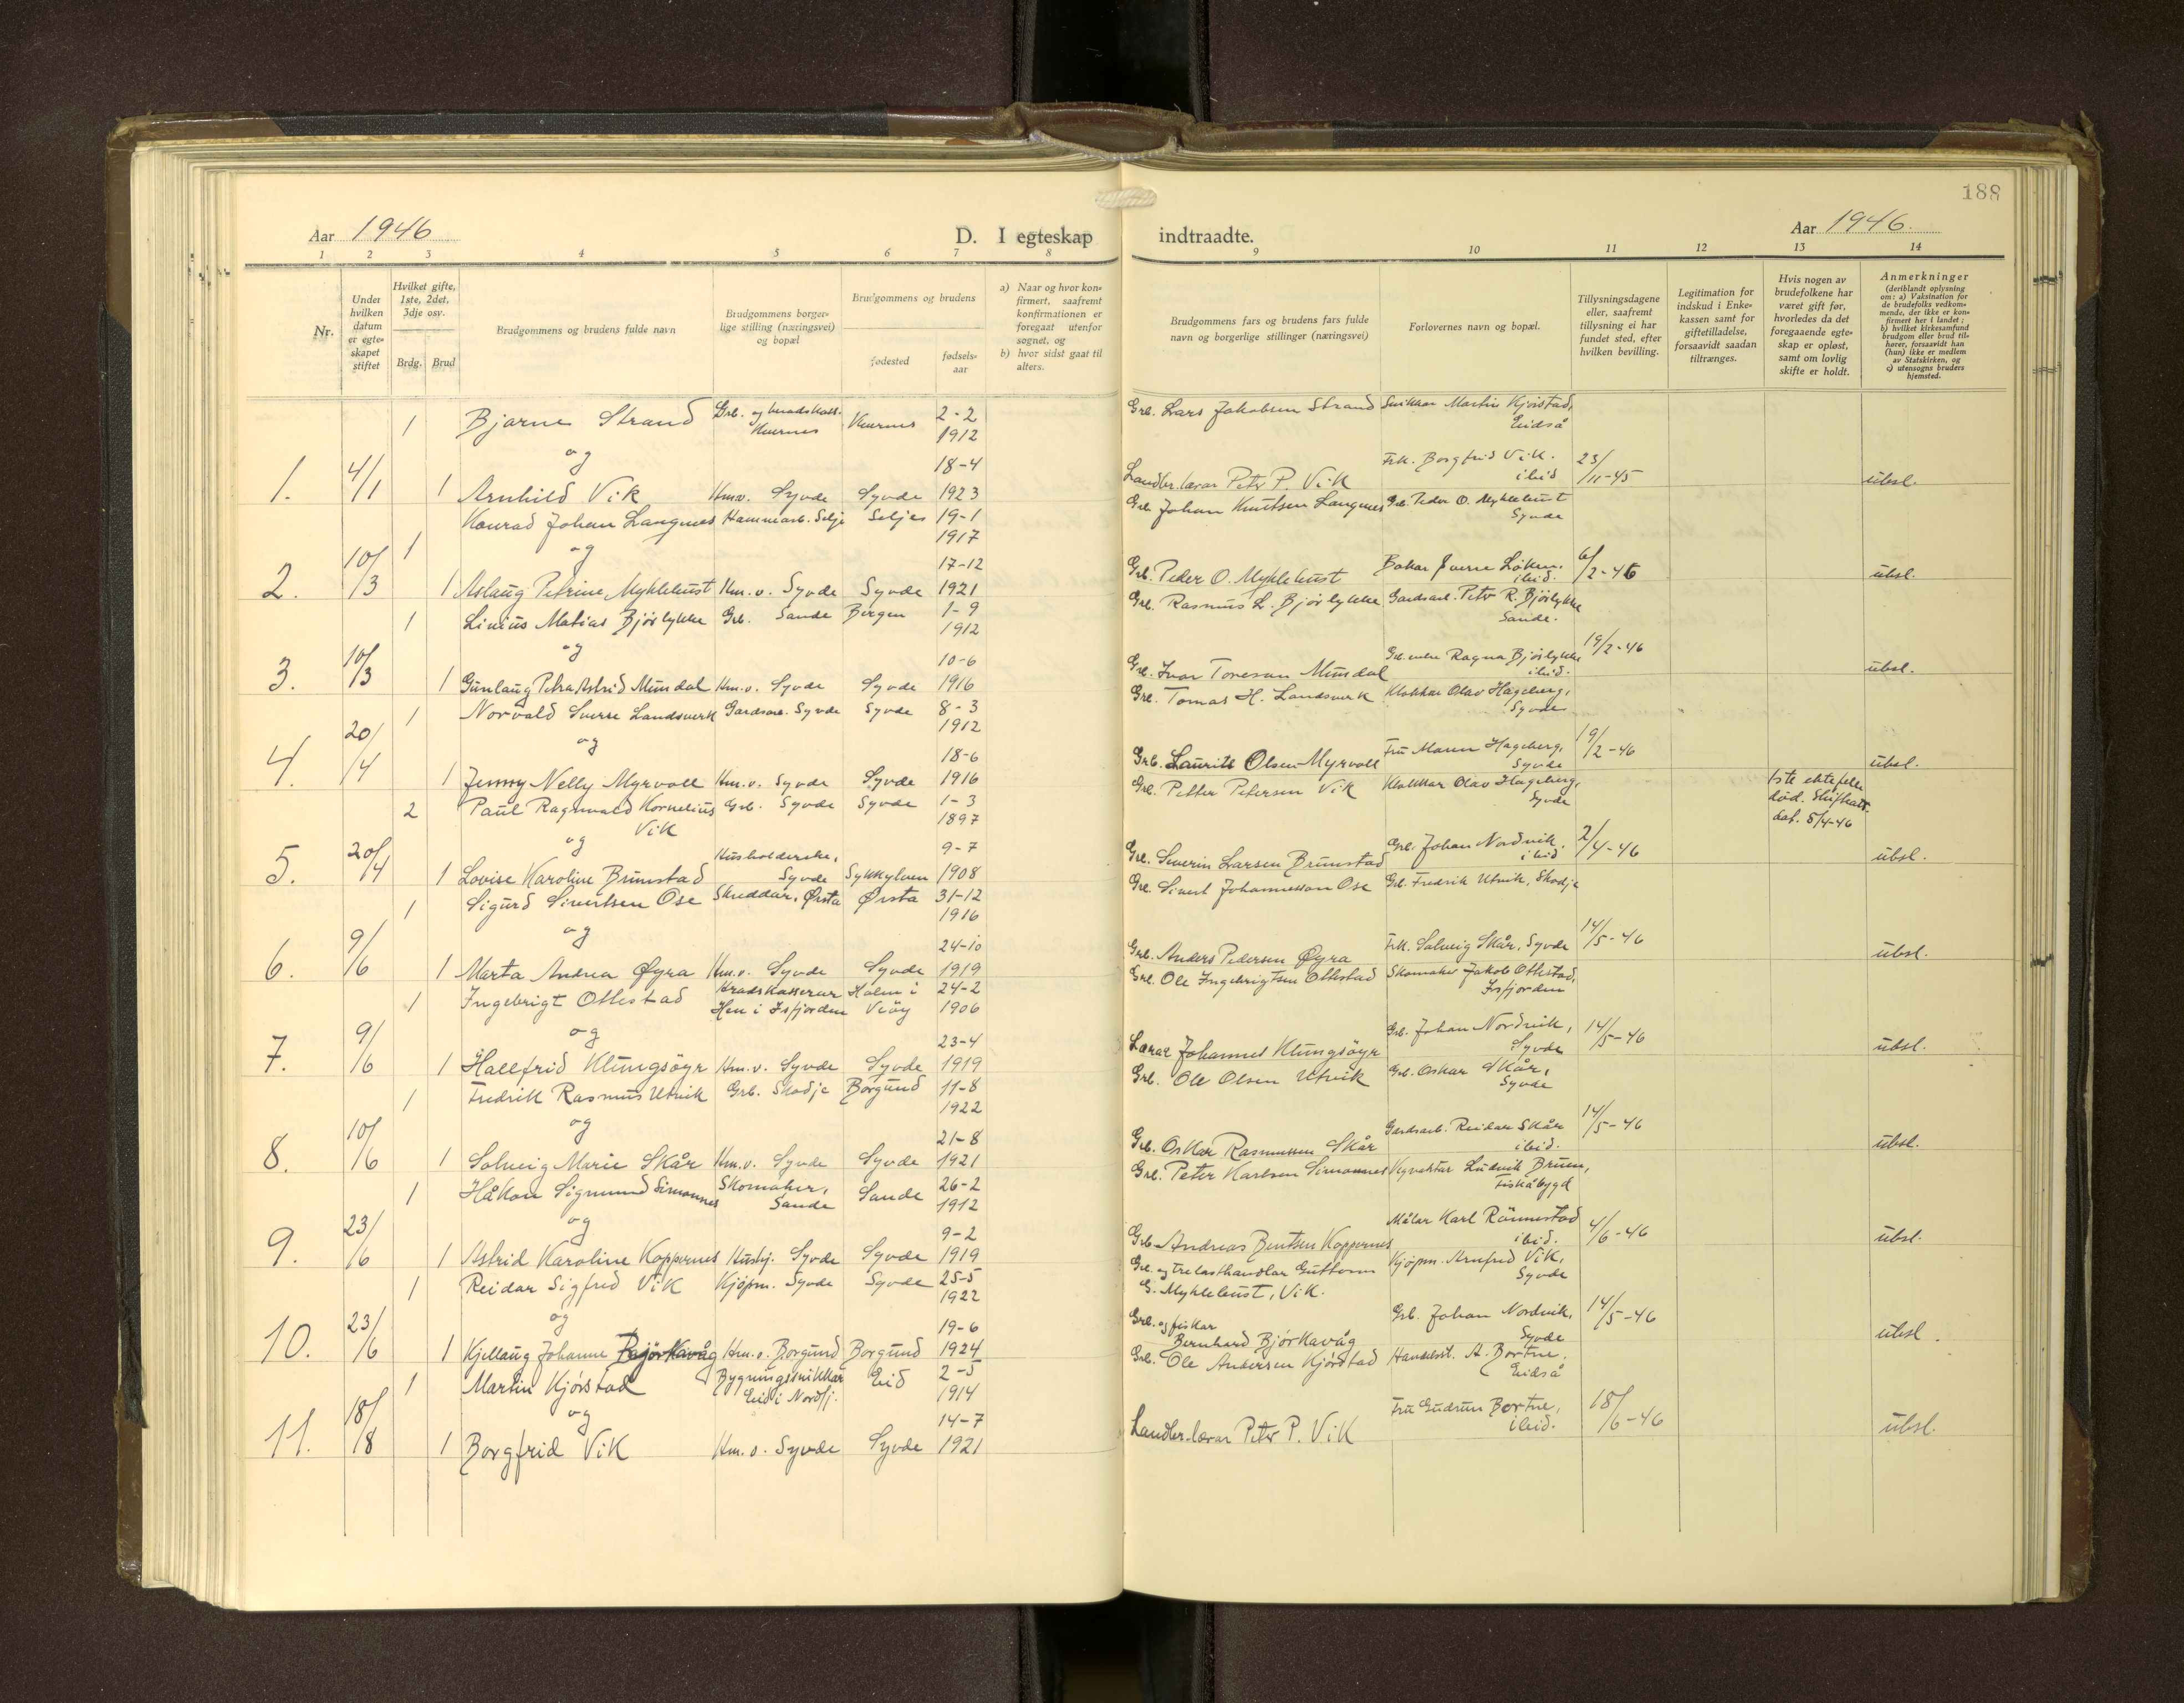 188
Aar 1946
D. I egteskap indtraadte.
Aar 1946.
1 2 3 4 5 6 7 8 9 10 11 12 13 14
Nr.
Under hvilken datum er egte-skapet stiftet
Hvilket gifte, 1ste, 2det, 3dje osv.
Brdg. Brud
Brudgommens og brudens fulde navn
Brudgommens borger-lige stilling (næringsvei) og bopæl
Brudgommens og brudens
fødested
fødsels-aar
a) Naar og hvor kon-firmert, saafremt konfirmationen er foregaat utenfor sognet, og
b) hvor sidst gaat til alters.
Brudgommens fars og brudens fars fulde navn og borgerlige stillinger (næringsvei)
Forlovernes navn og bopæl.
Tillysningsdagene eller, saafremt tillysning ei har fundet sted, efter hvilken bevilling.
Legitimation for indskud i Enke-kassen samt for giftetilladelse, forsaavidt saadan tiltrænges.
Hvis nogen av brudefolkene har været gift før, hvorledes da det foregaaende egte-skap er opløst, samt om lovlig skifte er holdt.
Anmerkninger
(deriblandt oplysning om: a) Vaksination for de brudefolks vedkom-mende, der ikke er kon-firmert her i landet; b) hvilket kirkesamfund brudgom eller brud til-hører, forsaavidt han (hun) ikke er medlem av Statskirken, og c) utensogns bruders hjemsted.
1 Bjarne Strand Grb. og heradskass. Kvernes Kvernes 2-2 1912 Grb. Lars Jakobsen Strand Snikkar Martin Kjörstad, Eidså
og
1. 4/1 1 Arnhild Vik Hm.v. Syvde Syvde 18-4 1923 Landbr.lærar Peter P. Vik Frk. Borgfrid Vik. ibid 23/11-45 ubsl.
1 Konrad Johan Langnes Hammarb. Selje Selje 19-1 1917 Grb. Johan Knutsen Langnes Grb. Peder O. Myklebust Syvde
og
2. 10/3 1 Aslaug Petrine Myklebust Hm.v. Syvde Syvde 17-12 1921 Grb. Peder O. Myklebust Bakar Sverre Löken. ibid. 6/2-46 ubsl.
1 Linius Matias Björlykke Grb. Sande Bergen 1-9 1912 Grb. Rasmus L. Björlykke Gardsarb. Peter R. Björlykke Sande.
og
3. 10/3 1 Gunlaug Petra Astrid Mundal Hm.v. Syvde Syvde 10-6 1916 Grb. Ivar Toresen Mundal Grb. enke Ragna Björlykke ibid. 19/2-46 ubsl.
1 Norvald Sverre Landsverk Gardsarb. Syvde Syvde 8-3 1912 Grb. Tomas H. Landsverk Klokkar Olav Hageberg, Syvde
og
4. 20/4 1 Jenny Nelly Myrvoll Hm.v. Syvde Syvde 18-6 1916 Grb. Laurits Olsen Myrvoll Fru Maren Hageberg, Syvde 19/2-46 ubsl.
2 Paul Ragnvald Kornelius Vik Grb. Syvde Syvde 1-3 1897 Grb. Petter Petersen Vik Klokkar Olav Hageberg, Syvde 1ste ektefelle död. Skifteatt. dat. 5/4-46
og
5. 20/4 1 Lovise Karoline Brunstad Husholderske, Syvde Sykkylven 9-7 1908 Grb. Severin Larsen Brunstad Grb. Johan Nordvik. ibid 2/4-46 ubsl.
1 Sigurd Sivertsen Ose Skreddar, Ørsta Ørsta 31-12 1916 Grb. Sivert Johannesson Ose Grb. Fredrik Utvik, Skodje
og
6. 9/6 1 Marta Andrea Øyra Hm.v. Syvde Syvde 24-10 1919 Grb. Anders Pedersen Øyra Frk. Solveig Skår, Syvde 14/5-46 ubsl.
1 Ingebrigt Ottestad Heradskasserar Hen i Isfjorden Holm i Veöy 24-2 1906 Grb. Ole Ingebrigtsen Ottestad Skomaker Jakob Ottestad, Isfjorden
og
7. 9/6 1 Hallfrid Klungsöyr Hm.v. Syvde Syvde 23-4 1919 Lærar Johannes Klungsöyr Grb. Johan Nordvik, Syvde 14/5-46 ubsl.
1 Fredrik Rasmus Utvik Grb. Skodje Borgund 11-8 1922 Grb. Ole Olsen Utvik Grb. Oskar Skår, Syvde
og
8. 10/6 1 Solveig Marie Skår Hm.v. Syvde Syvde 21-8 1921 Grb. Oskar Rasmussen Skår Gardsarb. Reidar Skår ibid. 14/5-46 ubsl.
1 Håkon Sigmund Simonnes Skomaker, Sande Sande 26-2 1912 Grb. Peter Karlsen Simonnes Ludvik Bruun, Fiskåbygd
og
9. 23/6 1 Astrid Karoline Koppernes Hushj. Syvde Syvde 9-2 1919 Grb. Andreas Bentsen Koppernes Målar Karl Rönnestad ibid. 4/6-46 ubsl.
1 Reidar Sigfred Vik Kjöpm. Syvde Syvde 25-5 1922 Grb. og trelasthandlar Guttorm G. Myklebust, Vik. Kjöpm. Arnfred Vik, Syvde
og
10. 23/6 1 Kjellaug Johanne Björkavåg Hm.v. Borgund Borgund 19-6 1924 Grb. og fiskar Bernhard Björkavåg Grb. Johan Nordvik, Syvde 14/5-46 ubsl.
1 Martin Kjörstad Bygningssnikkar Eid i Nordfj. Eid 2-5 1914 Grb. Ole Andersen Kjörstad Handelsb. A. Bortne. Eidså
og
11. 18/8 1 Borgfrid Vik Hm.v. Syvde Syvde 14-7 1921 Landbr.lærar Peter P. Vik Fru Gudrun Bortne, ibid. 18/6-46 ubsl.